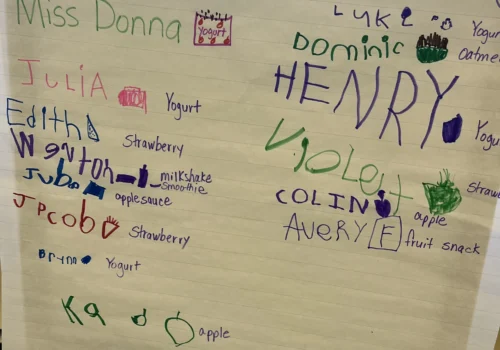 Miss Donna Yogurt
JULIA Yogurt
Edith Strawberry
Weston milkshake
smoothie
applesauce
Jacob Strawberry
Brynn Yogurt
Ka apple
LUKE Yogur
Dominic oatme
HENRY Yogu
Violett Straw
COLIN apple
AVERY F fruit snack